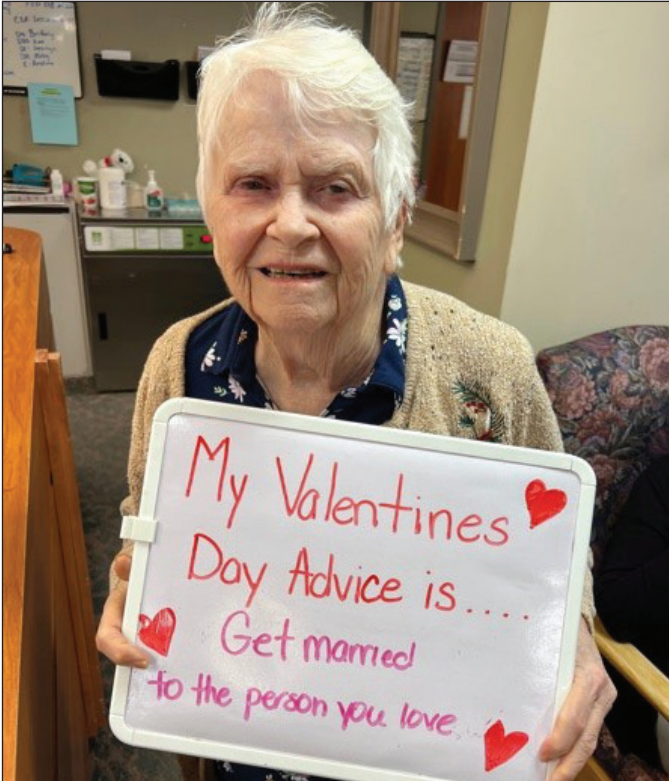 My Valentines
Day Advice is....
Get married
to the person you love